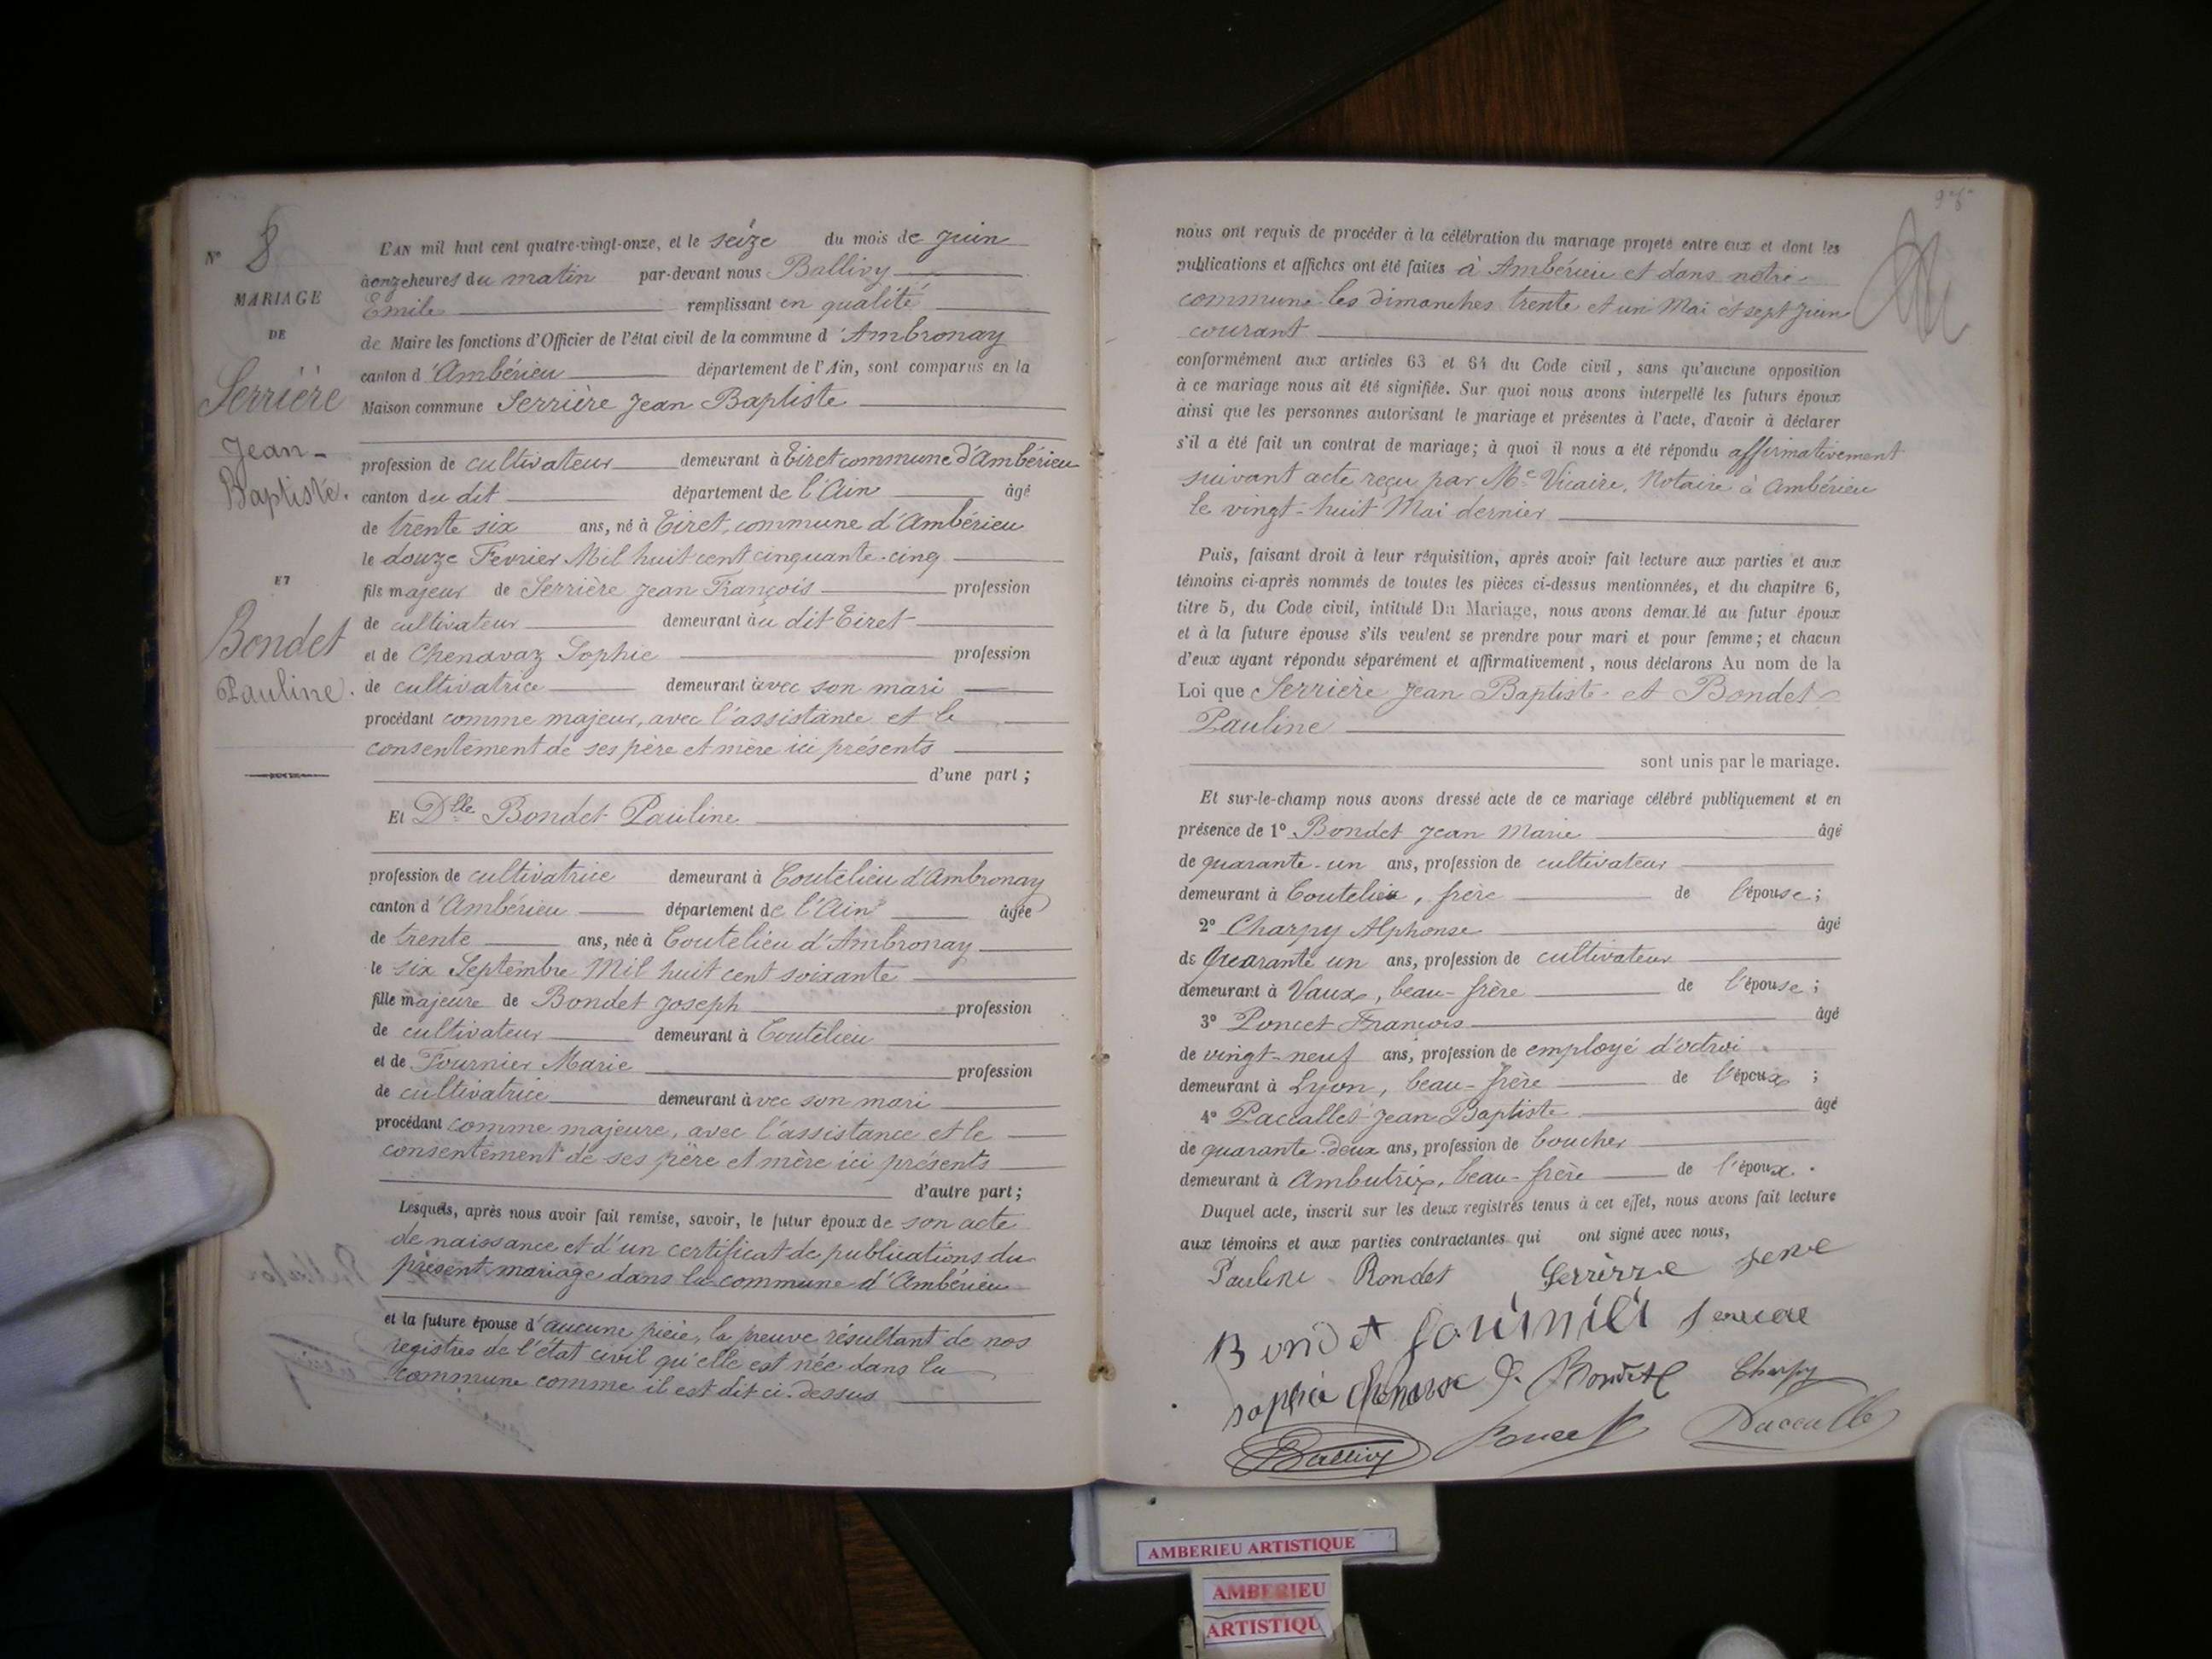 N° 8
MARIAGE
DE
Serrière
Jean-
Baptiste.
ET
Bondet
Pauline.
L'AN mil huit cent quatre-vingt-onze, et le seize du mois de Juin
à onze heures du matin par-devant nous Ballivy
Emile remplissant en qualité
de Maire les fonctions d'Officier de l'état civil de la commune d'Ambronay
canton d'Ambérieu département de l'Ain, sont comparus en la
Maison commune Serrière Jean Baptiste
profession de cultivateur demeurant à Tiret commune d'Ambérieu
canton du dit département de l'Ain âgé
de trente six ans, né à Tiret, commune d'Ambérieu
le douze Février Mil huit cent cinquante-cinq
fils majeur de Serrière Jean François profession
de cultivateur demeurant au dit Tiret
et de Chenavaz Sophie profession
de cultivatrice demeurant avec son mari
procédant comme majeur, avec l'assistance et le
consentement de ses père et mère ici présents
d'une part ;
Et Dlle Bondet Pauline
profession de cultivatrice demeurant à Coutelieu d'Ambronay
canton d'Ambérieu département de l'Ain âgée
de trente ans, née à Coutelieu d'Ambronay
le six Septembre Mil huit cent soixante
fille majeure de Bondet Joseph profession
de cultivateur demeurant à Coutelieu
et de Fournier Marie profession
de cultivatrice demeurant avec son mari
procédant comme majeure, avec l'assistance et le
consentement de ses père et mère ici présents
d'autre part ;
Lesquels, après nous avoir fait remise, savoir, le futur époux de son acte
de naissance et d'un certificat de publications du
présent mariage dans la commune d'Ambérieu
et la future épouse d'aucune pièce, la preuve résultant de nos
registres de l'état civil qu'elle est née dans la
commune comme il est dit ci-dessus
nous ont requis de procéder à la célébration du mariage projeté entre eux et dont les
publications et affiches ont été faites à Ambérieu et dans notre
commune les dimanches trente et un Mai et sept Juin
courant
conformément aux articles 63 et 64 du Code civil, sans qu'aucune opposition
à ce mariage nous ait été signifiée. Sur quoi nous avons interpellé les futurs époux
ainsi que les personnes autorisant le mariage et présentes à l'acte, d'avoir à déclarer
s'il a été fait un contrat de mariage ; à quoi il nous a été répondu affirmativement
suivant acte reçu par Me Vicaire, Notaire à Ambérieu
le vingt-huit Mai dernier
Puis, faisant droit à leur réquisition, après avoir fait lecture aux parties et aux
témoins ci-après nommés de toutes les pièces ci-dessus mentionnées, et du chapitre 6,
titre 5, du Code civil, intitulé Du Mariage, nous avons demandé au futur époux
et à la future épouse s'ils veulent se prendre pour mari et pour femme ; et chacun
d'eux ayant répondu séparément et affirmativement, nous déclarons Au nom de la
Loi que Serrière Jean Baptiste et Bondet
Pauline
sont unis par le mariage.
Et sur-le-champ nous avons dressé acte de ce mariage célébré publiquement et en
présence de 1° Bondet Jean Marie âgé
de quarante-un ans, profession de cultivateur
demeurant à Coutelieu, frère de l'épouse ;
2° Charpy Alphonse âgé
de Quarante un ans, profession de cultivateur
demeurant à Vaux, beau-frère de l'épouse ;
3° Poncet François âgé
de vingt-neuf ans, profession de employé d'octroi
demeurant à Lyon, beau-frère de l'époux ;
4° Paccallet Jean Baptiste âgé
de quarante-deux ans, profession de boucher
demeurant à Ambutrix, beau-frère de l'époux.
Duquel acte, inscrit sur les deux registres tenus à cet effet, nous avons fait lecture
aux témoins et aux parties contractantes qui ont signé avec nous,
Pauline Bondet Serrière
Bondet
sophie J. Bondet Charpy
Ballivy Poncet
AMBERIEU ARTISTIQUE
AMBERIEU
ARTISTIQU